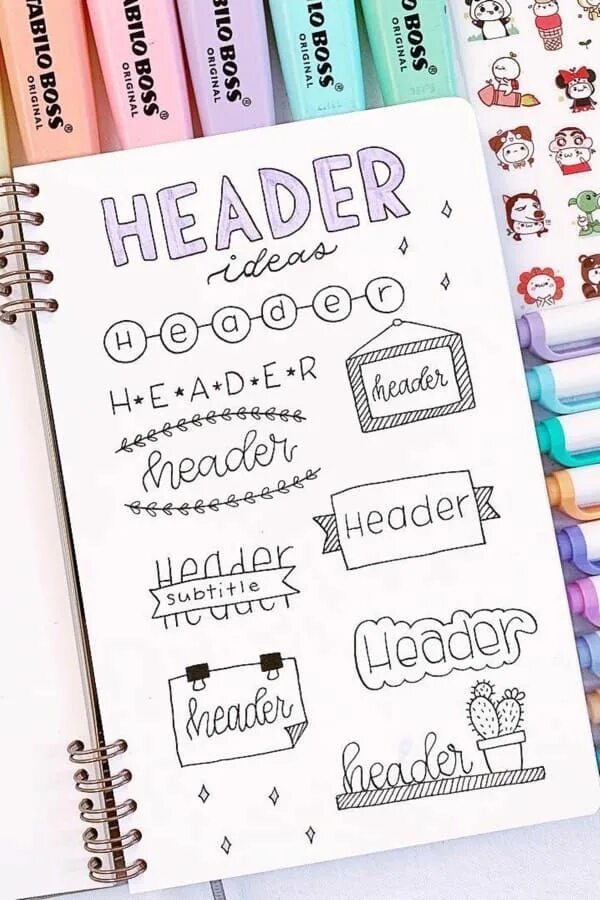 TABILO BOSS®
ORIGINAL
ABILO BOSS®
ORIGINAL
ABILO BOSS®
ORIGINAL
LO BOSS®
ORIGINAL
BOSS®
ORIGINAL
HEADER
ideas
Header
H★E★A★D★E★R
header
header
Header
Header
subtitle
Header
Header
header
header